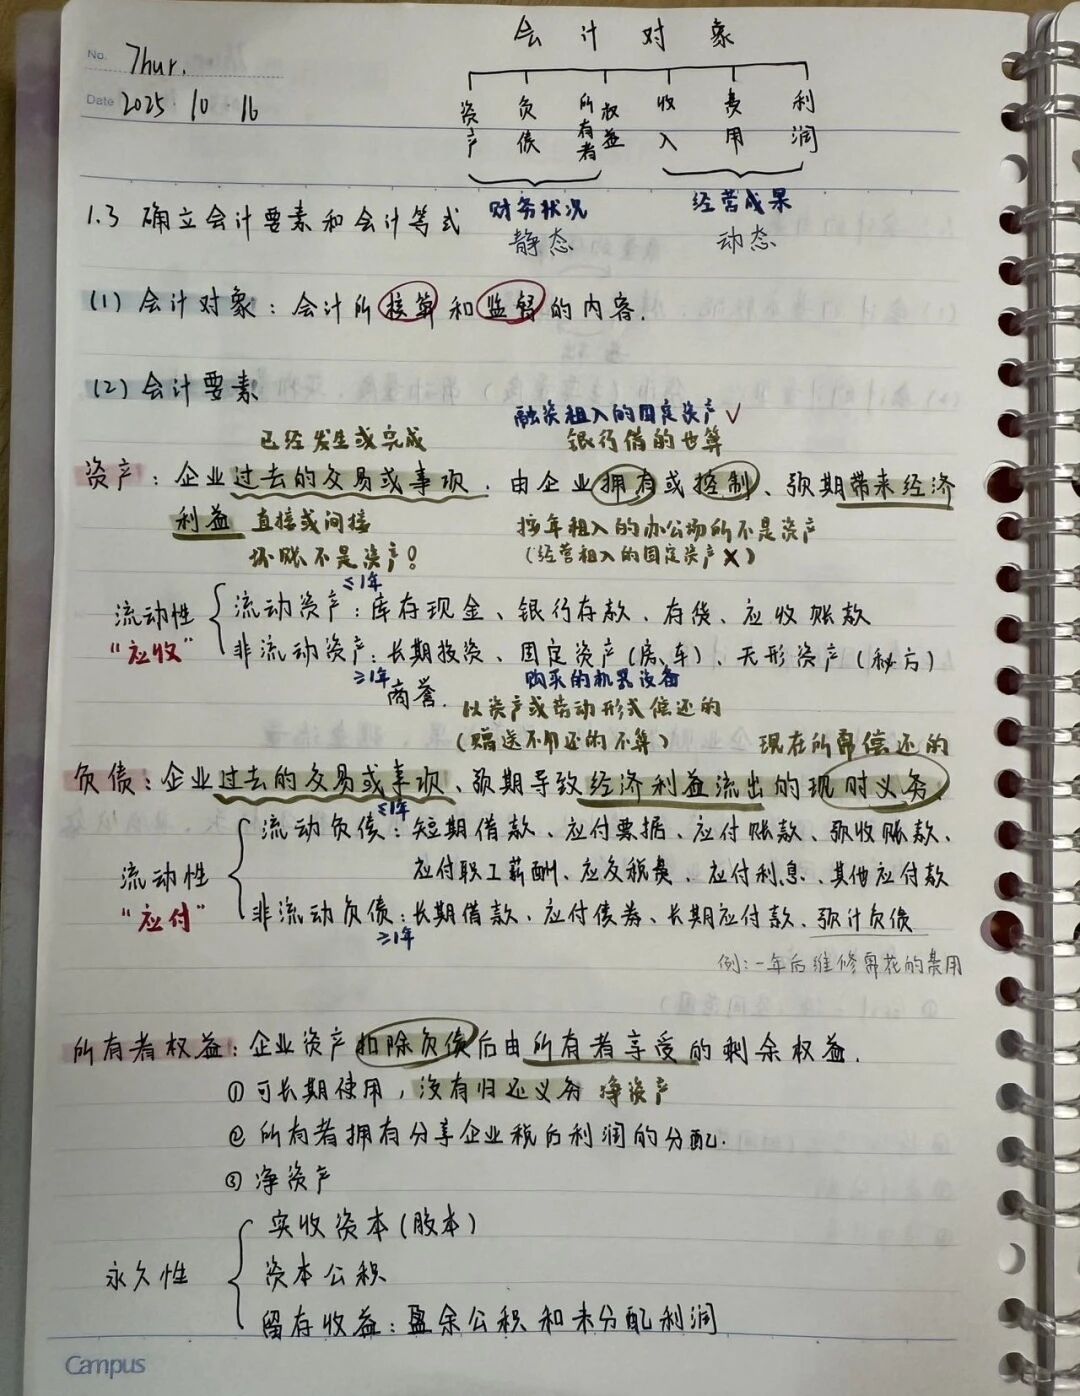 会计对象
No. Thur.
Date 2025.10.16
资产 负债 所有者权益 收入 费用 利润
财务状况 经营成果
静态 动态
1.3 确立会计要素和会计等式
(1) 会计对象：会计所核算和监督的内容.
(2) 会计要素
融资租入的固定资产✓
已经发生或完成 银行借的也算
资产：企业过去的交易或事项、由企业拥有或控制、预期带来经济
利益 直接或间接 按年租入的办公场所不是资产
坏账不是资产！ (经营租入的固定资产✗)
≤1年
流动性 流动资产：库存现金、银行存款、存货、应收账款
"应收" 非流动资产：长期投资、固定资产(房、车)、无形资产(秘方)
≥1年 商誉. 购买的机器设备
以资产或劳动形式偿还的
(赠送不用还的不算) 现在所需偿还的
负债：企业过去的交易或事项、预期导致经济利益流出的现时义务.
≤1年
流动负债：短期借款、应付票据、应付账款、预收账款、
流动性 应付职工薪酬、应交税费、应付利息、其他应付款
"应付" 非流动负债：长期借款、应付债券、长期应付款、预计负债
≥1年
例：一年后维修需花的费用
所有者权益：企业资产扣除负债后由所有者享受的剩余权益.
① 可长期使用，没有归还义务 净资产
② 所有者拥有分享企业税后利润的分配.
③ 净资产
实收资本(股本)
永久性 资本公积
留存收益：盈余公积和未分配利润
Campus